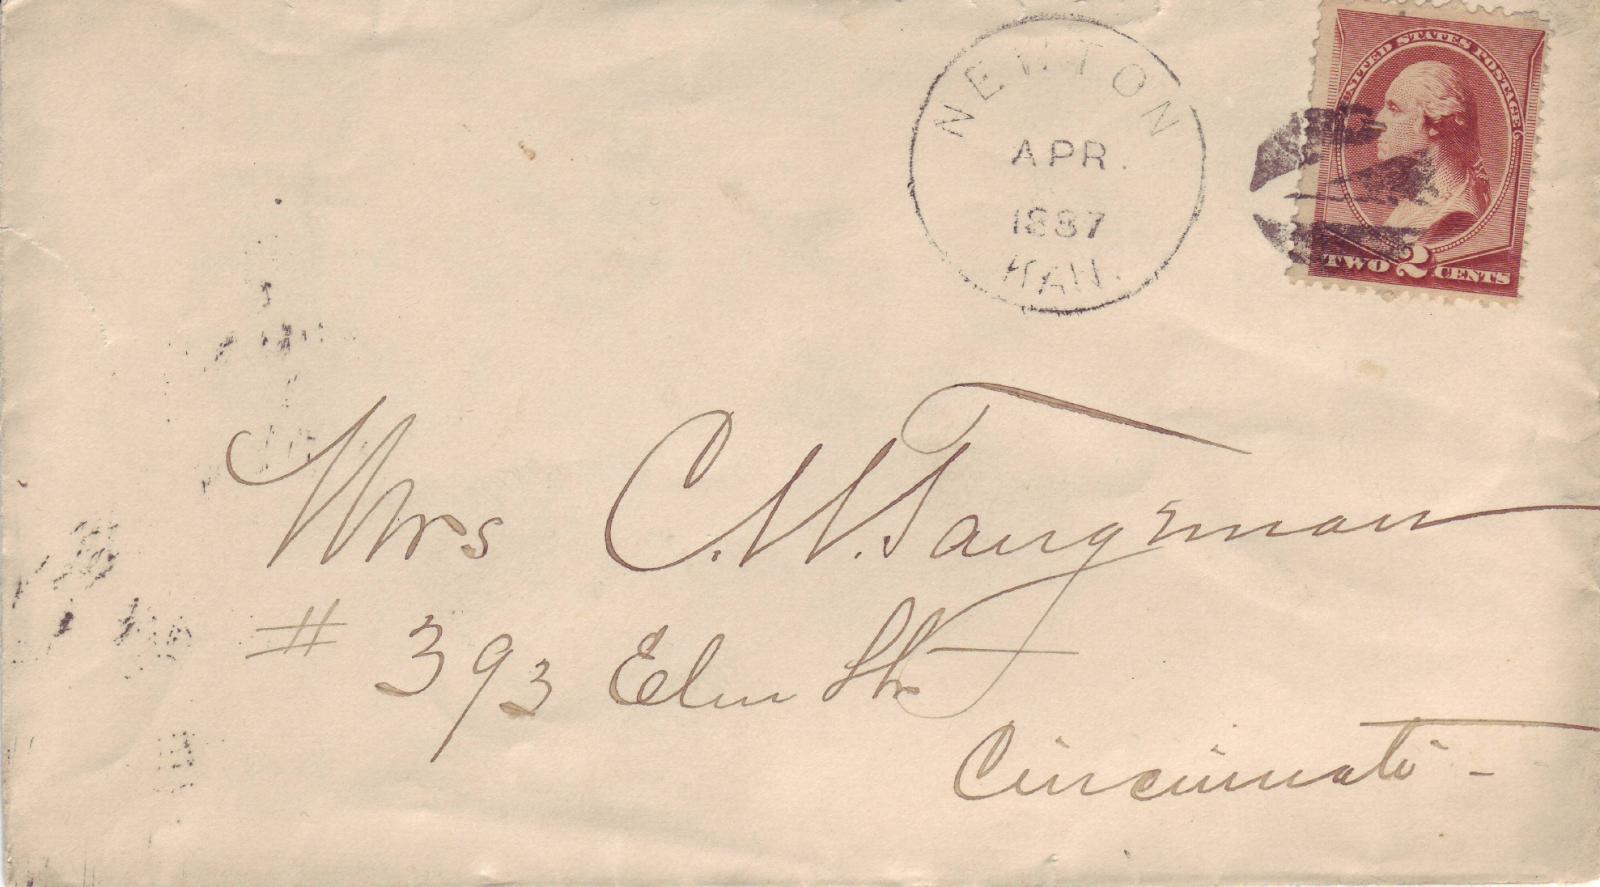 NEWTON
APR.
1887
KAN.
UNITED STATES POSTAGE
TWO 2 CENTS
Mrs C. W. Tangeman
# 393 Elm Str
Cincinnati -